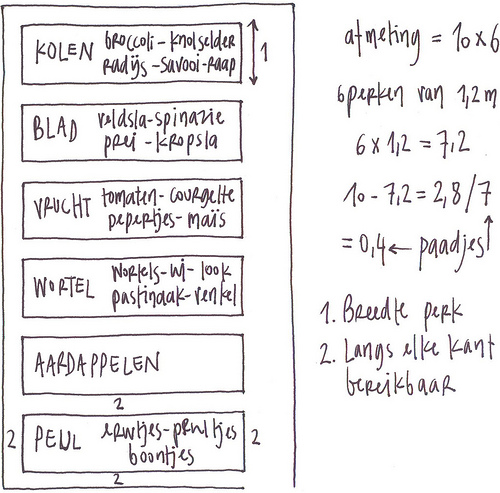 KOLEN broccoli-knolselder
radijs-savooi-raap
1
BLAD veldsla-spinazie
prei-kropsla
VRUCHT tomaten-courgette
pepertjes-maïs
WORTEL wortels-ui-look
pastinaak-venkel
AARDAPPELEN
2
2 PEUL erwtjes-prultjes 2
boontjes
2
afmeting = 10x6
6 perken van 1,2 m
6 x 1,2 = 7,2
10 - 7,2 = 2,8/7
= 0,4 ← paadjes ↑
1. Breedte perk
2. Langs elke kant
bereikbaar